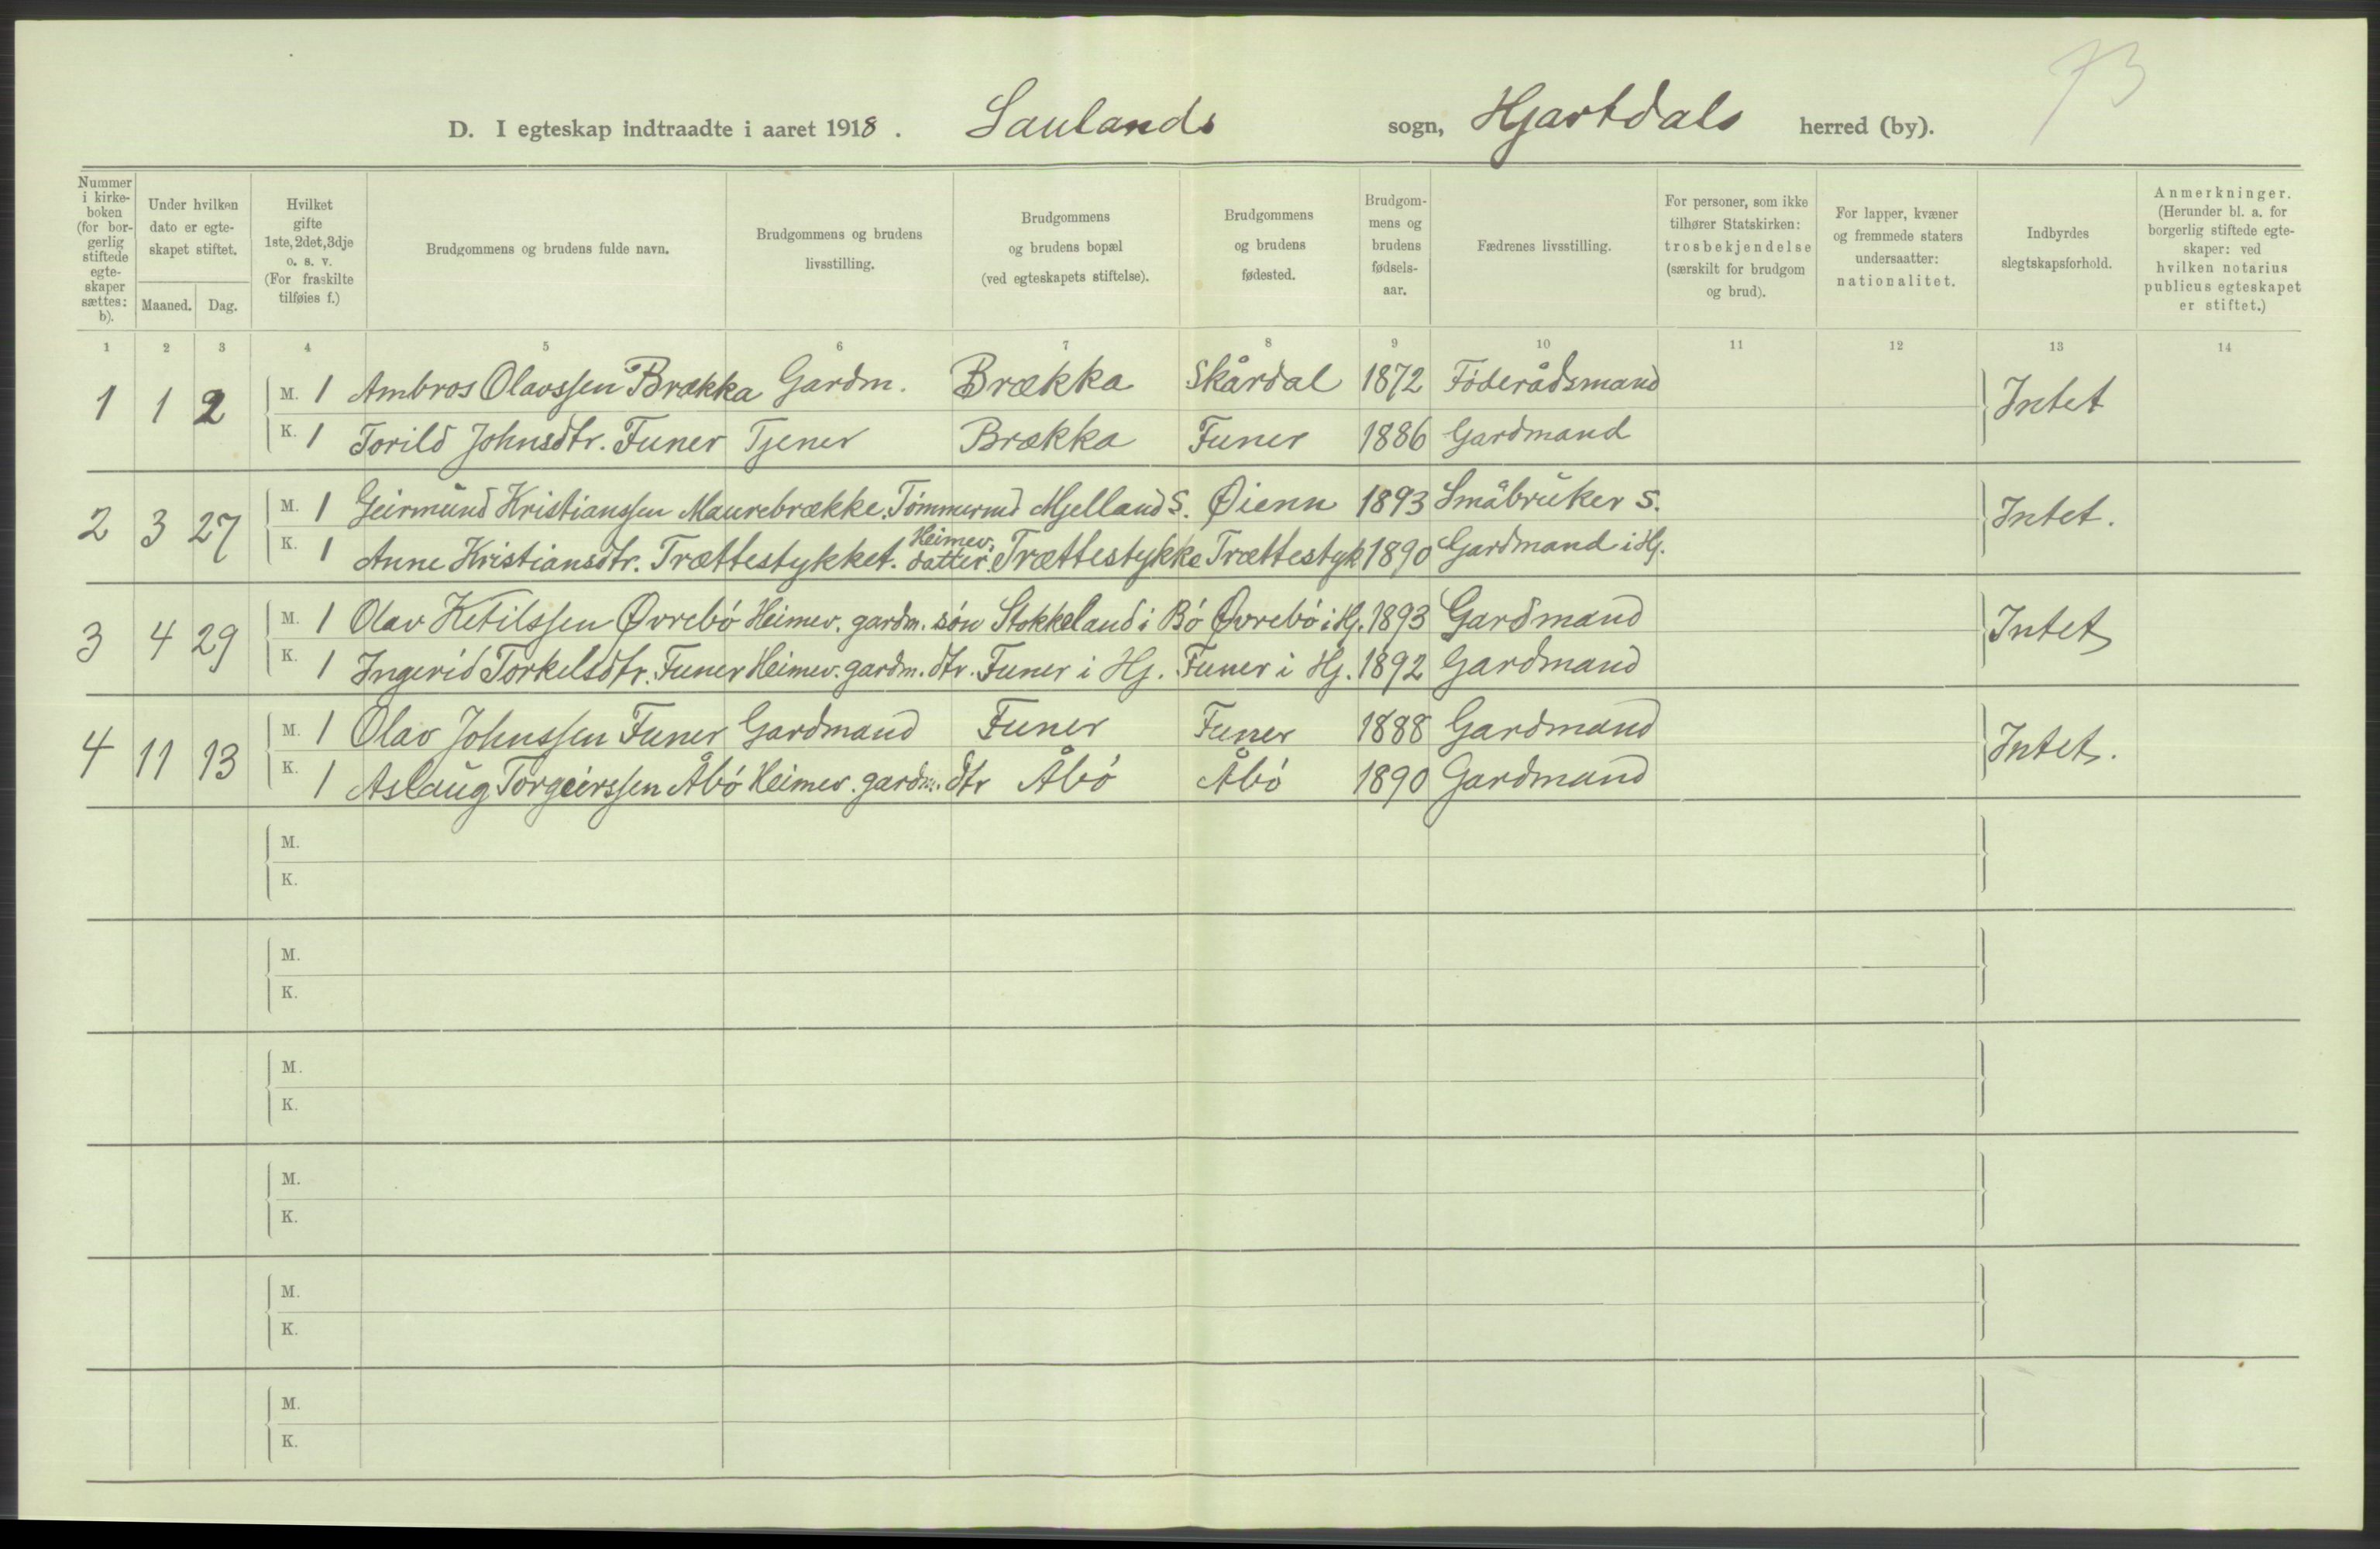 73
D. I egteskap indtraadte i aaret 1918. Saulands sogn, Hjartdals herred (by).
Nummer i kirke-boken (for bor-gerlig stiftede egte-skaper sættes: b).
Under hvilken dato er egte-skapet stiftet.
Maaned. Dag.
Hvilket gifte 1ste, 2det, 3dje o. s. v. (For fraskilte tilføies f.)
Brudgommens og brudens fulde navn.
Brudgommens og brudens livsstilling.
Brudgommens og brudens bopæl (ved egteskapets stiftelse).
Brudgommens og brudens fødested.
Brudgom-mens og brudens fødsels-aar.
Fædrenes livsstilling.
For personer, som ikke tilhører Statskirken: trosbekjendelse (særskilt for brudgom og brud).
For lapper, kvæner og fremmede staters undersaatter: nationalitet.
Indbyrdes slegtskapsforhold.
Anmerkninger. (Herunder bl. a. for borgerlig stiftede egte-skaper: ved hvilken notarius publicus egteskapet er stiftet.)
1 2 3 4 5 6 7 8 9 10 11 12 13 14
1 1 2 M. 1 Ambros Olavssen Brækka Gardm. Brækka Skårdal 1872 Föderådsmand Intet
K. 1 Torild Johnsdtr. Funer Tjener Brækka Funer 1886 Gardmand
2 3 27 M. 1 Geirmund Kristianssen Maurebrække. Tömmermd Mjelland S. Øienn 1893 Småbruker S. Intet.
K. 1 Anne Kristiansdtr. Trættestykket. Heimev. datter. Trættestykke Trættestyk 1890 Gardmand i Hj.
3 4 29 M. 1 Olav Ketilssen Øvrebö Heimev. gardm. sön Stokkeland i Bö Øvrebö i Hj. 1893 Gardmand Intet
K. 1 Ingerid Torkelsdtr. Funer Heimev. gardm. dtr. Funer i Hj. Funer i Hj. 1892 Gardmand
4 11 13 M. 1 Olav Johnssen Funer Gardmand Funer Funer 1888 Gardmand Intet.
K. 1 Aslaug Torgeirssen Åbö Heimev. gardm. dtr Åbö Åbö 1890 Gardmand
M.
K.
M.
K.
M.
K.
M.
K.
M.
K.
M.
K.